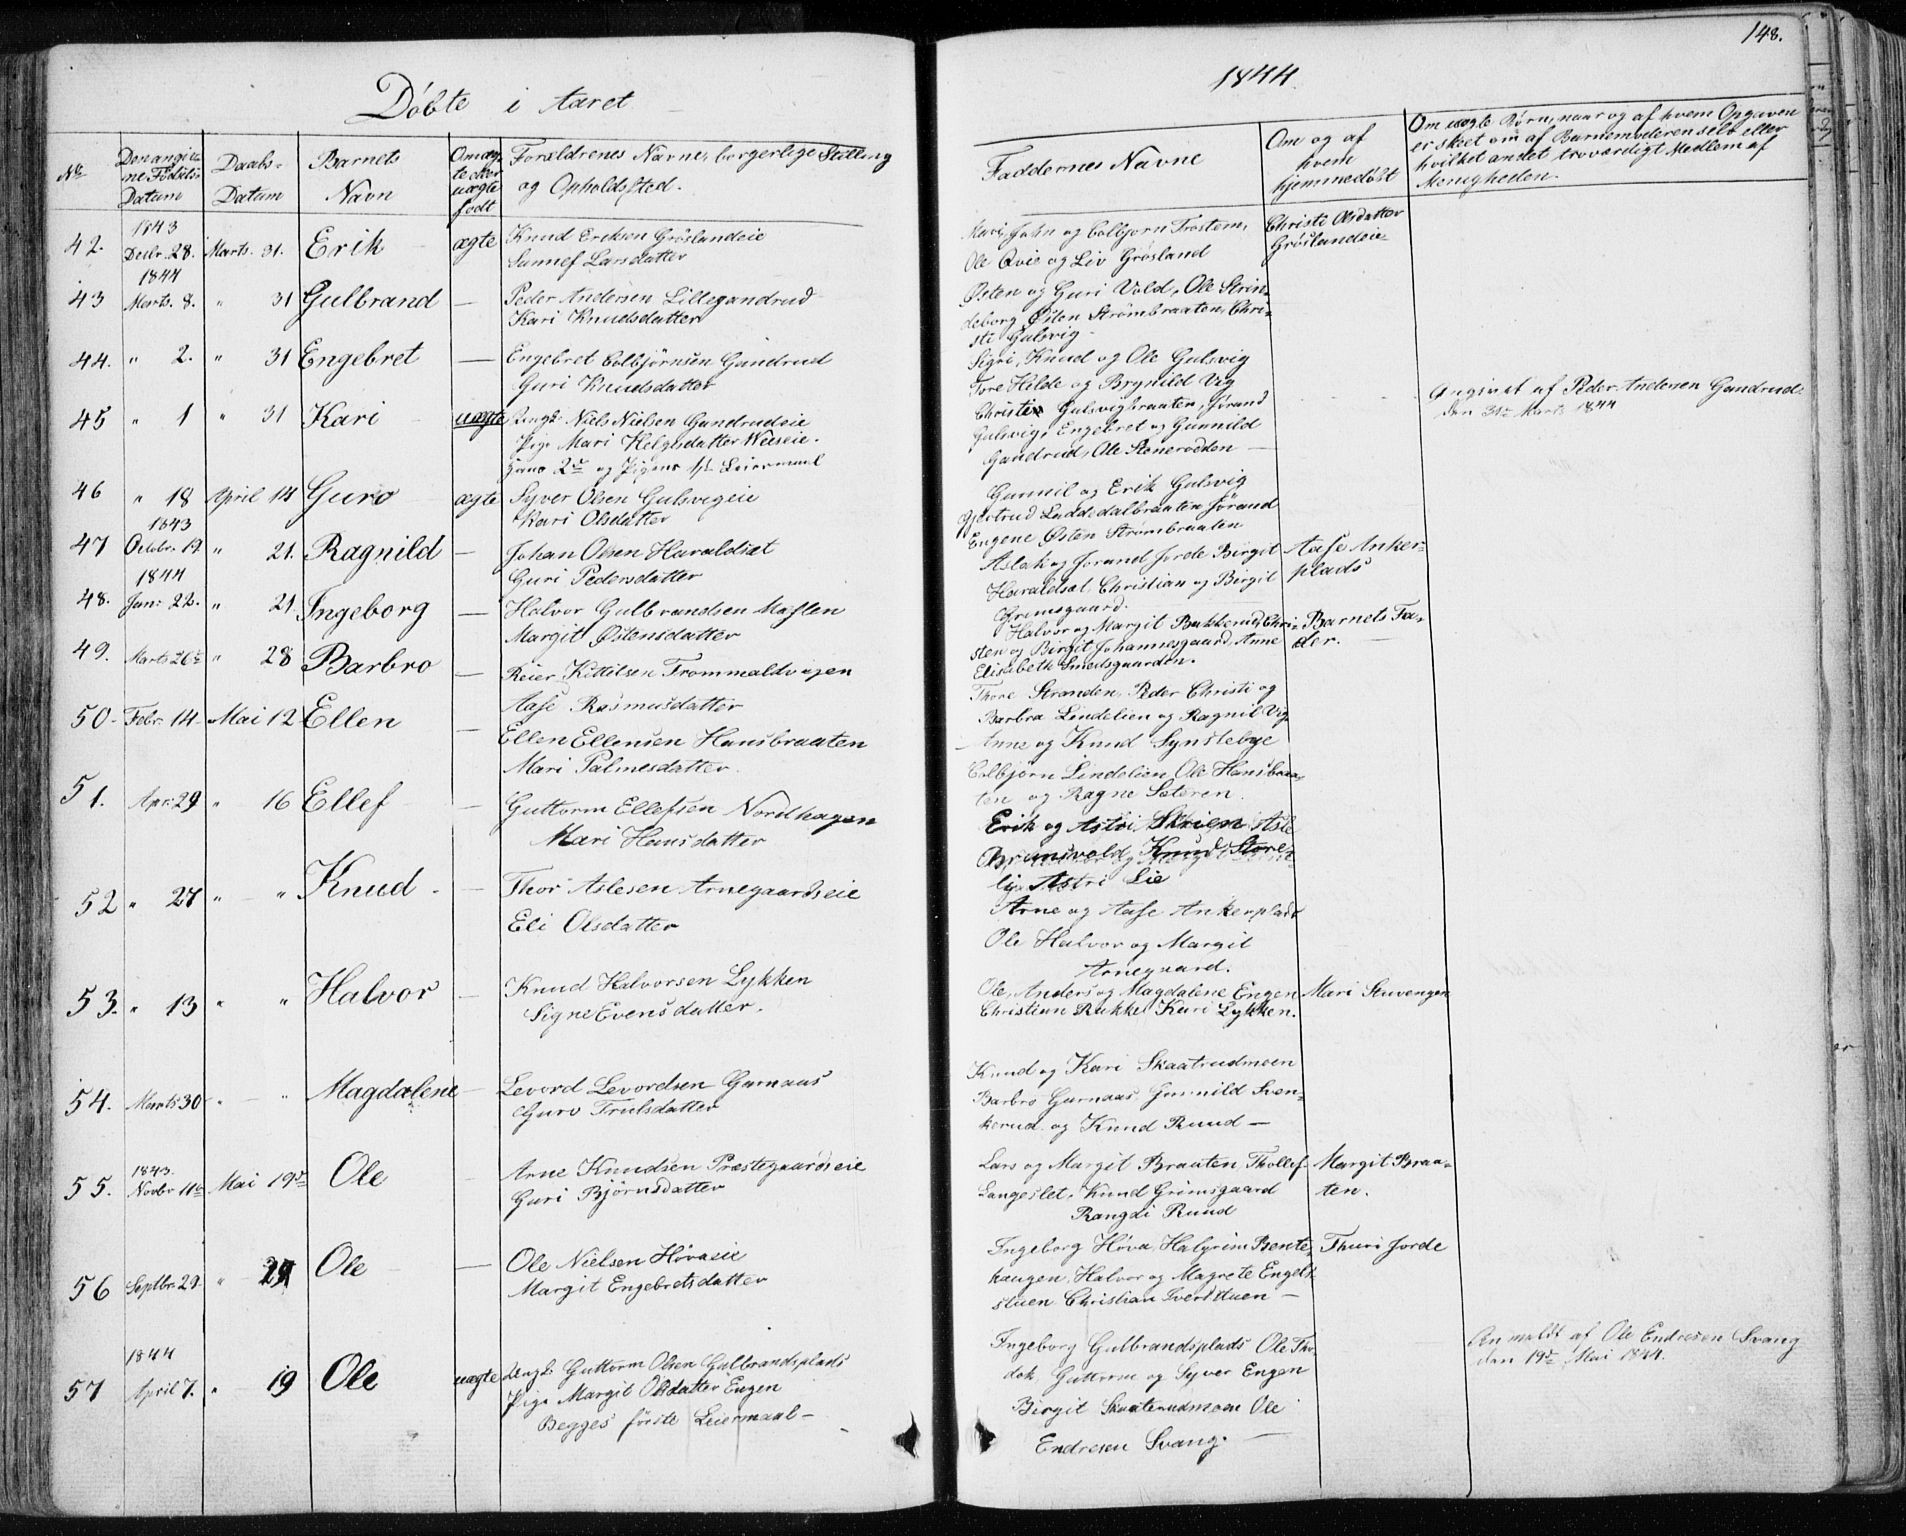 148.
Døbte i Aaret
1844.
No
Den angivne Fødsels Datum
Daabs-Datum
Barnets Navn
Om ægte eller uægte født
Forældrenes Navne, borgerlige Stilling og Opholdssted.
Faddernes Navne
Om og af hvem hjemmedøbt
Om uægte Børn, naar og af hvem Opgaven er skeet om af Barnemoderen selv eller hvilket andet troværdigt Medlem af Menigheden.
42. 1843 Decbr. 28. Marts. 31. Erik ægte Knud Eriksen Grøslandeie
Sunnef Larsdatter
Mari, John og Colbjørn Trostem,
Ole Qvie og Liv Grøsland
Christi Olsdatter
Grøslandeie
43 1844 Marts. 8. " 31 Gulbrand — Peder Andersen Lillegandrud
Kari Knudsdatter
Østen og Guri Vold, Ole Strin-
deborg Østen Strømbraaten, Chri-
sti Gulsvig
44. " 2. " 31 Engebret — Engebret Colbjørnsen Gandrud
Guri Knudsdatter
Sigri, Knud og Ole Gulsvig
Tore Hilde og Brynild Vig
45 " 1 " 31 Kari uægte Ungk: Niels Nielsen Gandrudeie
Pige Mari Helgesdatter
Hans 2det og Pigens 1ste Leiermaal
Christi Gulsvigbraaten, Jørand
Gulsvig, Engebret og Gunnild
Gandrud, Ole Stenerodden —
Angivet af Peder Andersen Gandrud
den 31te Marts 1844
46 " 18 April 14 Guro ægte Syver Olsen Gulsvigeie
Kari Olsdatter
Gunnil og Erik Gulsvig
Gjertrud Luddedalbraaten Jørand
Eugene Østen Strømbraaten
47 1843 Octobr. 19. " 21. Ragnild — Johan Olsen Haraldset
Guri Pedersdatter
Aslak og Jorand Jorde Birgit
Haraldset, Christian og Birgit
Grimsgaard.
Aase Anker-
plads
48. 1844 Jan: 22. " 21. Ingeborg — Halvor Gulbrandsen Moflen
Margit Østensdatter
Halvor og Margit Bukkerud, Chri-
sten og Birgit Johannesgaard, Anne
Elisabeth Smedsgaarden.
Barnets Fa-
der. —
49. Marts 26de " 28 Barbro — Reier Kittilsen Trommaldvigen
Aase Rasmusdatter
Thore Stranden, Peder Christi og
Barbra Lindelien og Ragnil Vig
50. Febr. 14 Mai 12 Ellen — Ellen Ellensen Hansbraaten
Mari Palmesdatter.
Anne og Knud Synstebye
Colbjørn Lindelien, Ole Hansbraa-
ten og Ragne Sæteren.
51. Apr: 29 " 16 Ellef — Guttorm Ellefsen Nordhagen
Mari Hansdatter
Erik og Astri Skrien, Asle
Brunsvold, Knud Store-
lie Astri Lie
52 " 27 " " Knud. — Thor Aslesen Arnegaardseie
Eli Olsdatter
Arne og Aase Ankerplads
Ole Halvor og Margit
Arnegaard.
53. " 13 " " Halvor — Knud Halvorsen Lykken
Signe Evensdatter.
Ole, Anders og Magdalene Engen
Christian Rukke Kari Lykken.
Mari Stuvengen
54. Marts 30 " " Magdalene — Levord Levordsen Garnaas
Guro Trulsdatter
Knud og Kari Skaatrudmoen
Barbro Garnaas Gunnild Sven-
kerud og Knud Ruud —
55. 1843. Novbr 11te Mai 19de Ole — Arne Knudsen Præstegaardseie
Guri Bjørnsdatter
Lars og Margit Braaten Thollef
Langeslet, Knud Grimsgaard
Rangdi Ruud
Margit Braa-
ten.
56 Septbr. 29 " 29 Ole — Ole Nielsen Høvaeie
Margit Engebretsdatter
Ingeborg Høva, Halgrim Bente-
haugen, Halvor og Magrete Engel-
stuen Christian Iverstuen —
Thuri Jorde
57 1844 April 7. " 19 Ole uægte Ungk: Guttorm Olsen Gulbrandsplads
Pige Margit Olsdatter Engen
Begges første Leiermaal —
Ingeborg Gulbrandsplads Ole Tho-
dok, Guttorm og Syver Engen
Birgit Skaaterudmoen Ole
Endresen Svang. —
Anmeldt af Ole Endresen Svang
den 19de Mai 1844.